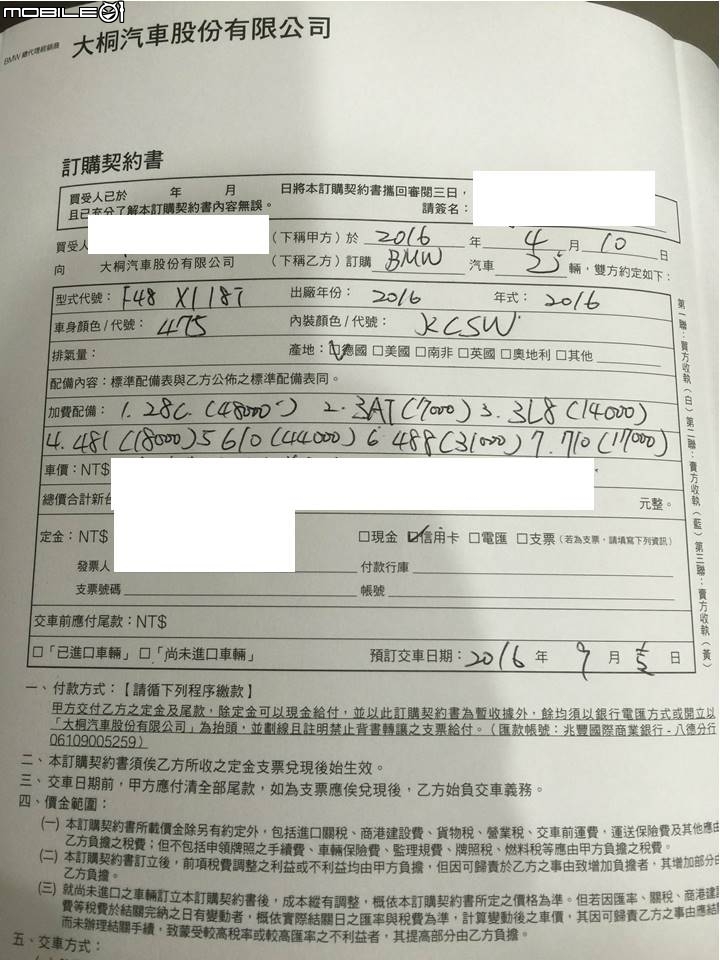 MOBILE01
BMW 總代理經銷商 大桐汽車股份有限公司
訂購契約書
買受人已於 年 月 日將本訂購契約書攜回審閱三日，
且已充分了解本訂購契約書內容無誤。 請簽名：
買受人 （下稱甲方）於 2016 年 4 月 10 日
向 大桐汽車股份有限公司 （下稱乙方）訂購 BMW 汽車 輛，雙方約定如下：
型式代號：F48 X1 18i 出廠年份：2016 年式：2016
車身顏色/代號：475 內裝顏色/代號：KCSW
排氣量： 產地：☑德國 □美國 □南非 □英國 □奧地利 □其他
配備內容：標準配備表與乙方公佈之標準配備表同。
加費配備：1. 28C. (48000) 2. 3AT (7000) 3. 3L8 (14000)
4. 481 (18000) 5 610 (44000) 6 488 (31000) 7. 710 (17000)
車價：NT$
總價合計新台
元整。
定金：NT$ □現金 ☑信用卡 □電匯 □支票（若為支票，請填寫下列資訊）
發票人 付款行庫
支票號碼 帳號
交車前應付尾款：NT$
□「已進口車輛」 □「尚未進口車輛」 預訂交車日期：2016 年 月 日
第一聯：買方收執（白）第二聯：賣方收執（藍）第三聯：賣方收執（黃）
一、付款方式：【請循下列程序繳款】
甲方交付乙方之定金及尾款，除定金可以現金給付，並以此訂購契約書為暫收據外，餘均須以銀行電匯方式或開立以
「大桐汽車股份有限公司」為抬頭，並劃線且註明禁止背書轉讓之支票給付。（匯款帳號：兆豐國際商業銀行-八德分行
06109005259）
二、本訂購契約書須俟乙方所收之定金支票兌現後始生效。
三、交車日期前，甲方應付清全部尾款，如為支票應俟兌現後，乙方始負交車義務。
四、價金範圍：
(一) 本訂購契約書所載價金除另有約定外，包括進口關稅、商港建設費、貨物稅、營業稅、交車前運費，運送保險費及其他應由
乙方負擔之稅費；但不包括申領牌照之手續費、車輛保險費、監理規費、牌照稅、燃料稅等應由甲方負擔之稅費。
(二) 本訂購契約書訂立後，前項稅費調整之利益或不利益均由甲方負擔，但因可歸責於乙方之事由致增加負擔者，其增加部分由
乙方負擔。
(三) 就尚未進口之車輛訂立本訂購契約書後，成本縱有調整，概依本訂購契約書所定之價格為準。但若因匯率、關稅、商港建設
費等稅費於結關完納之日有變動者，概依實際結關日之匯率與稅費為準，計算變動後之車價，其因可歸責乙方之事由應結關
而未辦理結關手續，致蒙受較高稅率或較高匯率之不利益者，其提高部分由乙方負擔。
五、交車方式：